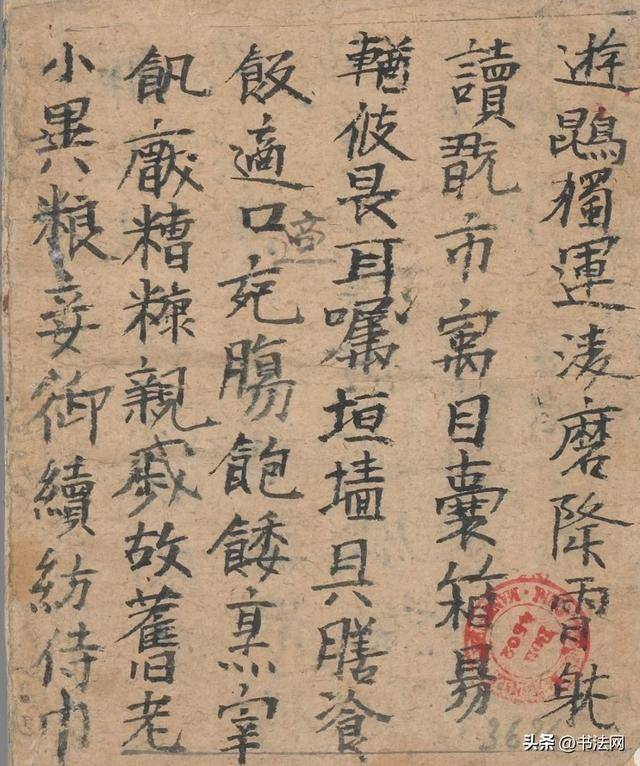 遊鵾獨運淩磨降霄躭
讀翫市寓目囊箱易
輶攸畏耳囑垣墻具膳湌
飯適口充腸飽餧烹宰
適
飢厭糟糠親戚故舊老
小異粮妾御續紡侍巾
4502
头条 @书法网